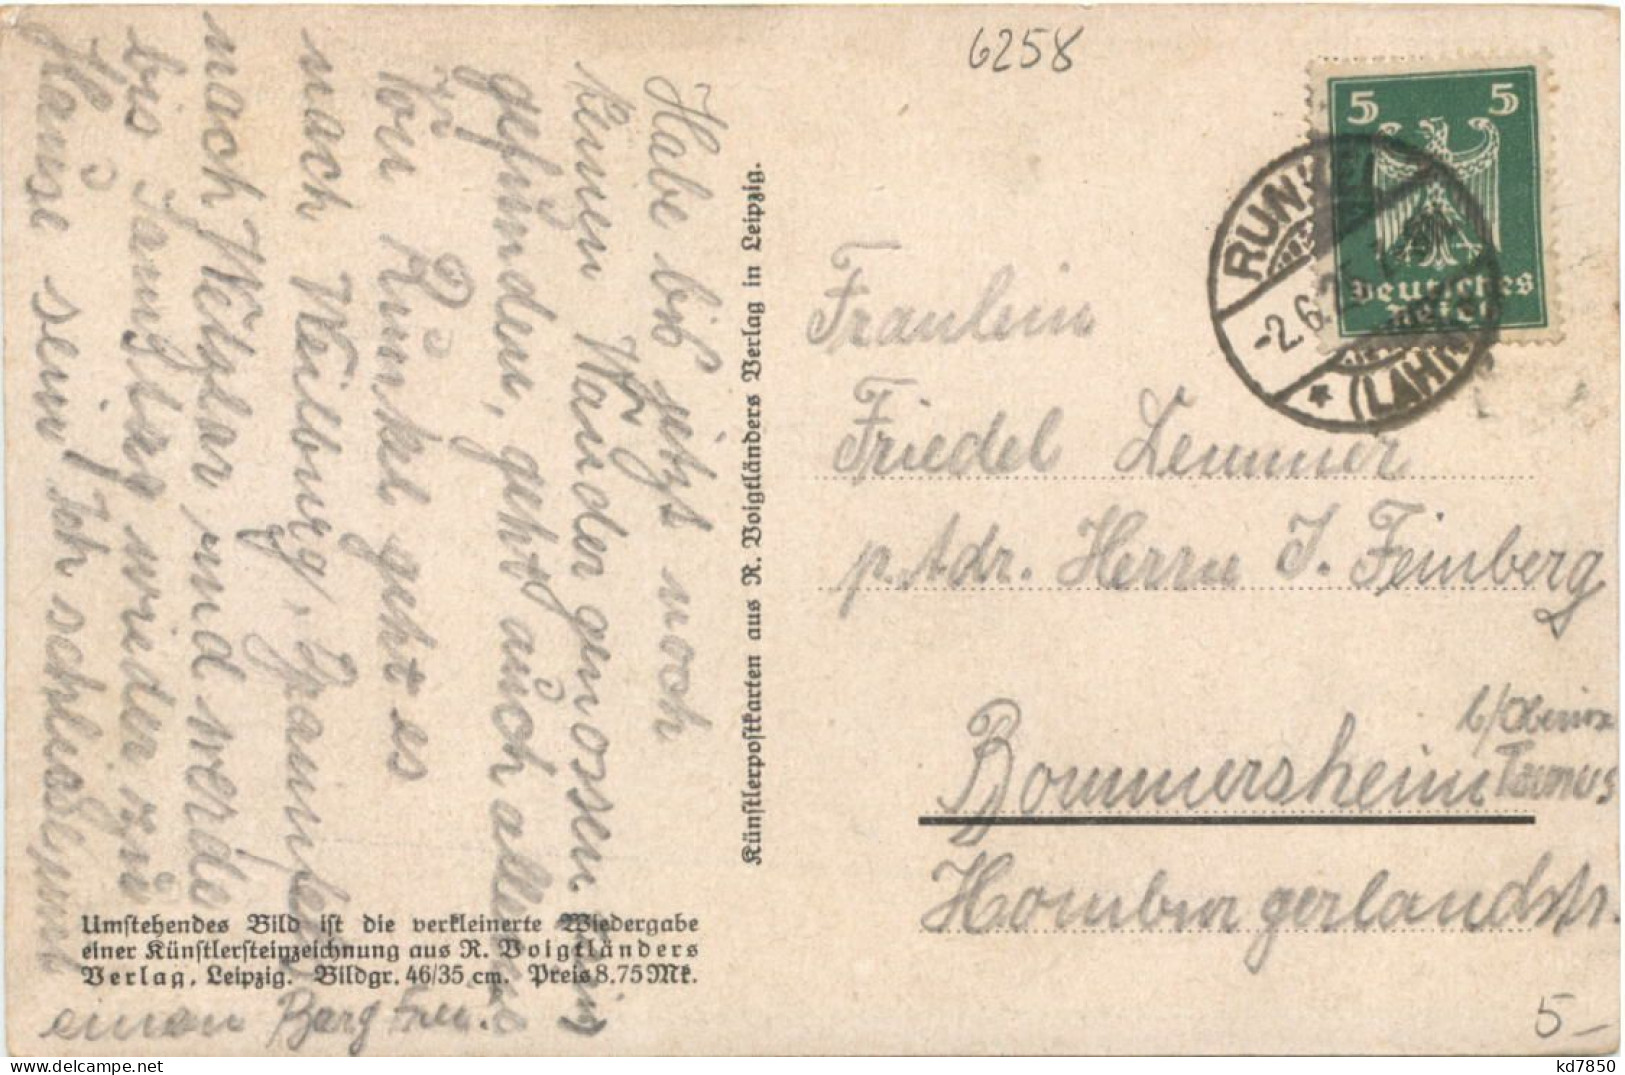 6258
5 5
Deutsches
Reich
RUNKEL
-2.6.25.
★ (LAHN)
Habe bis jetzt noch
keinen Wandergenossen
gefunden, geht auch allein
Von Runkel geht es
nach Weilburg, Braunfels
nach Wetzlar und werde
bis Samstag wieder zu
Hause sein! Ich schliesse mit
einem Berg Frei.
Künstlerpostkarten aus R. Voigtländers Verlag in Leipzig.
Umstehendes Bild ist die verkleinerte Wiedergabe
einer Künstlersteinzeichnung aus R. Voigtländers
Verlag, Leipzig. Bildgr. 46/35 cm. Preis 8.75 Mk.
Fraulein
Friedel Lemmer
p. Adr. Herrn J. Feinberg
Bommersheim
Taunus
Homburgerlandstr.
5-
kd7850